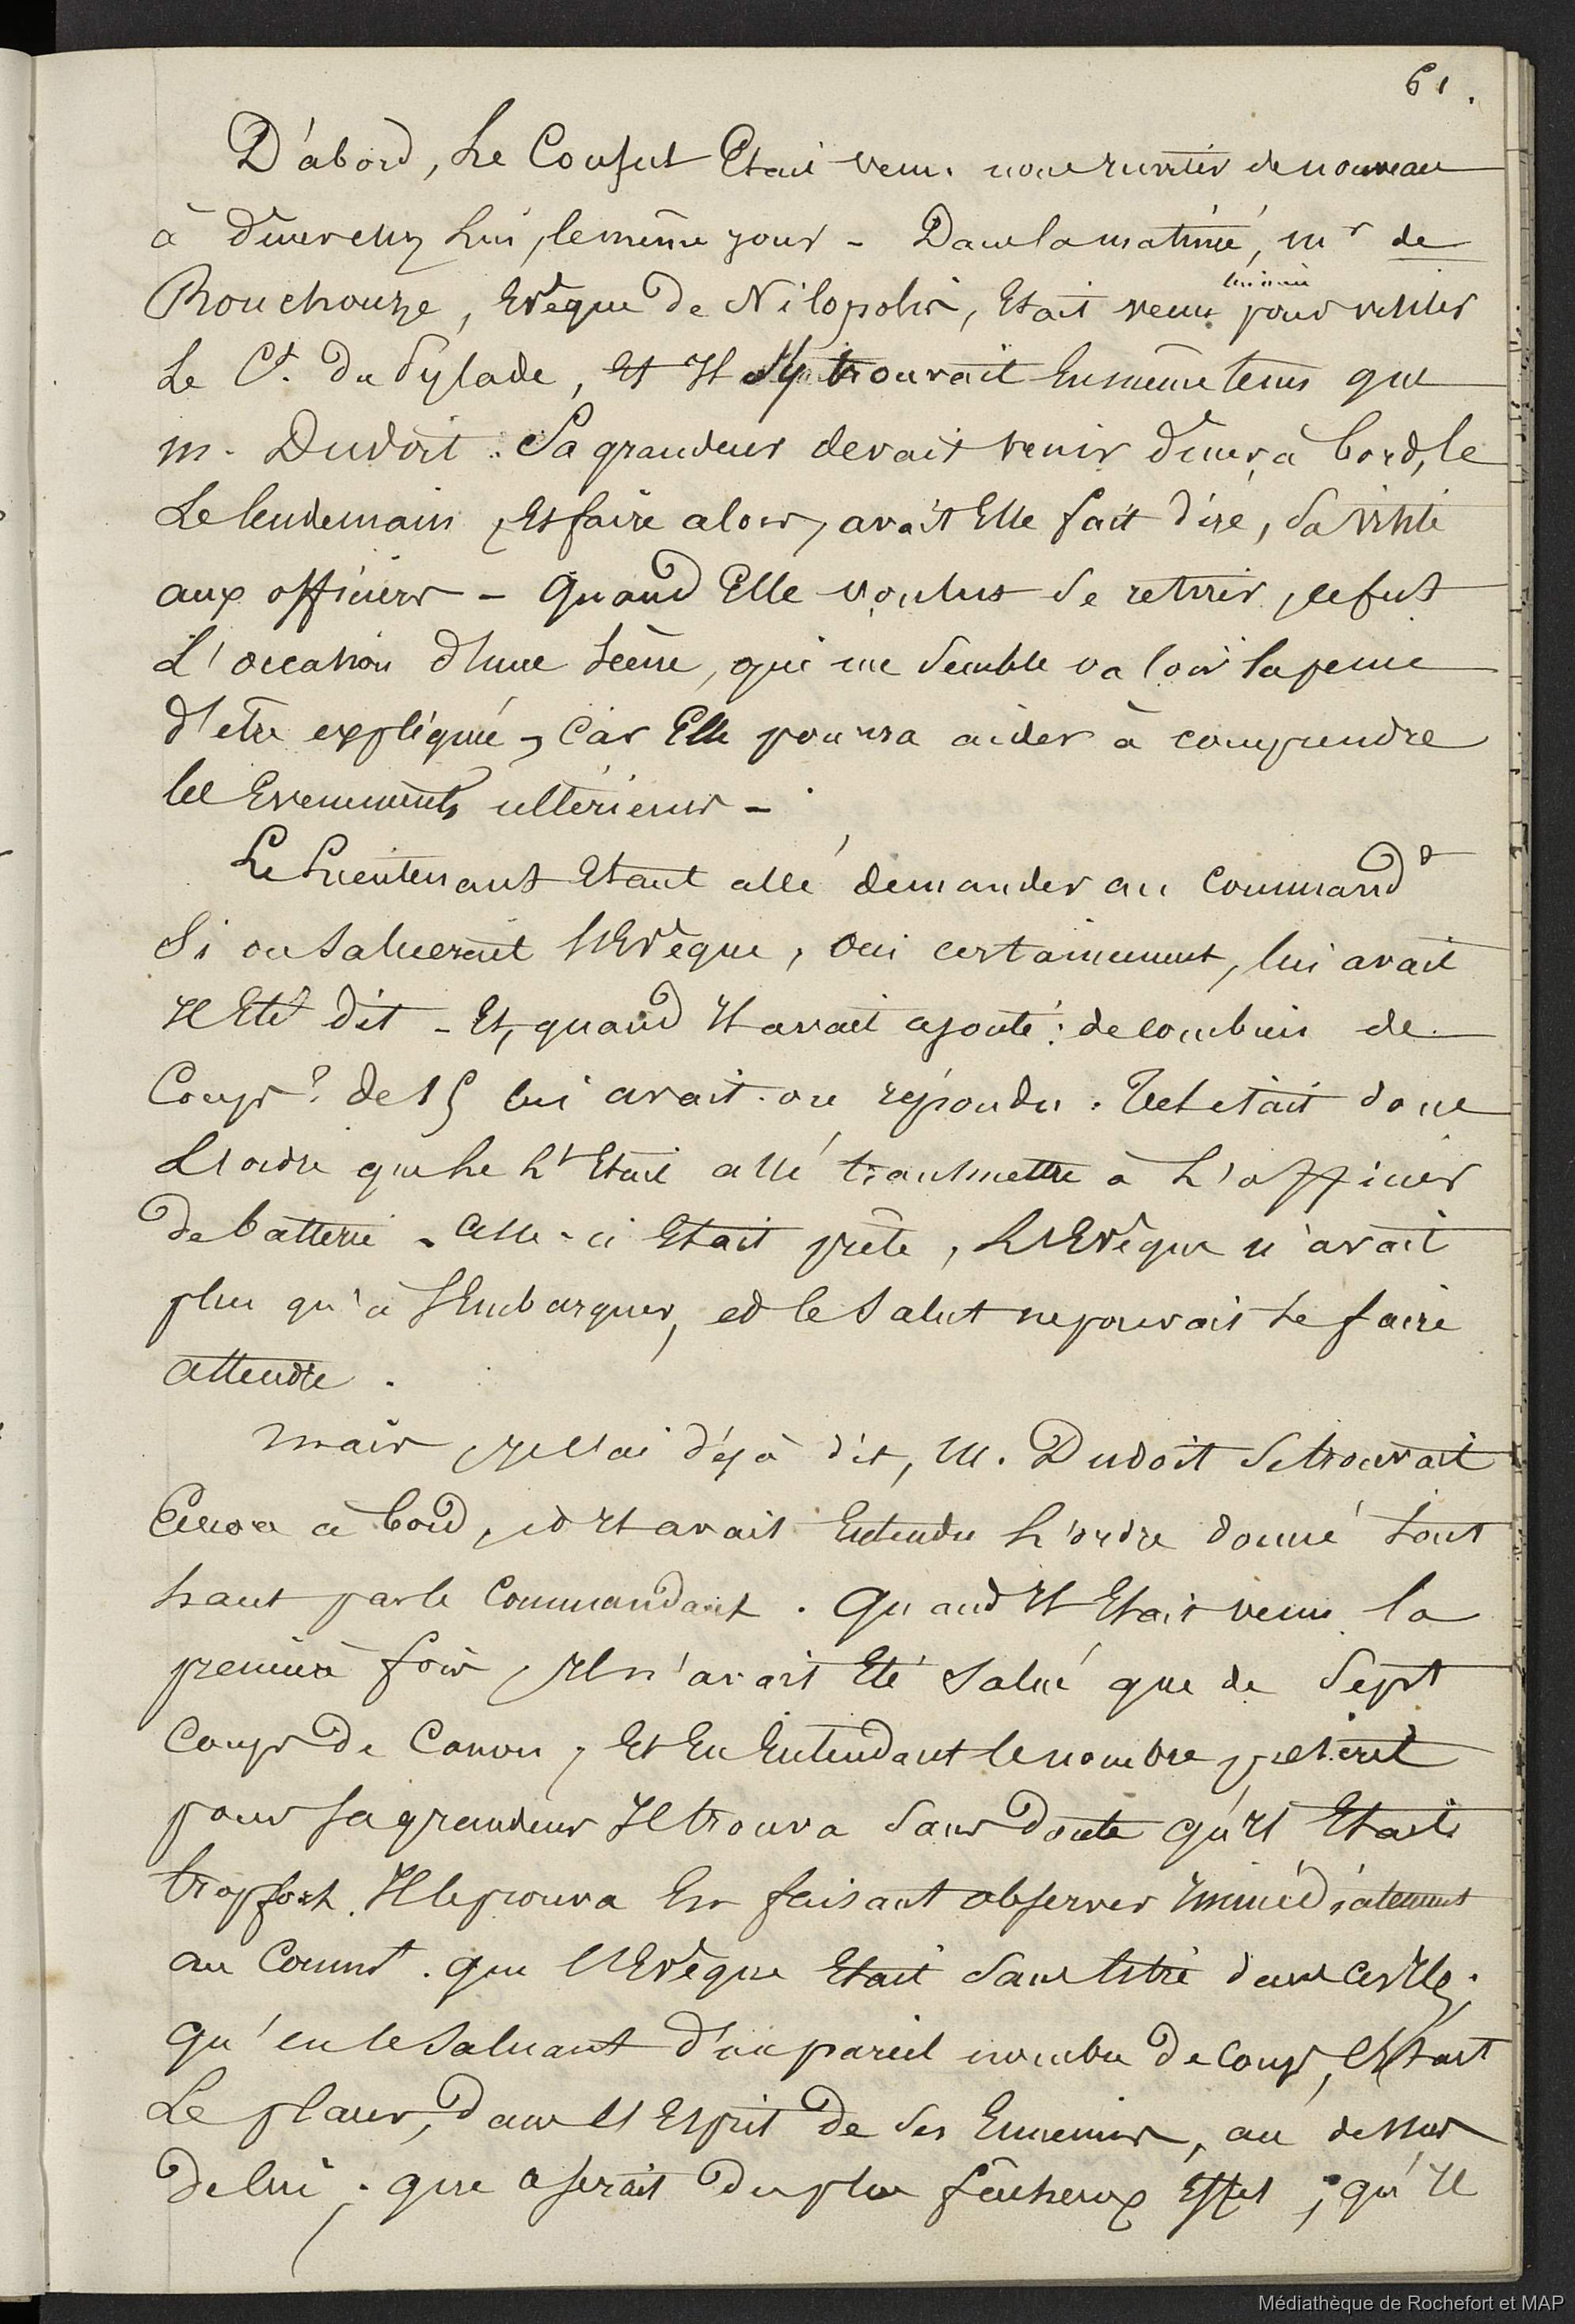 61.
D'abord, Le Consul Etait venu nous inviter de nouveau
à dîner chez lui, le même jour - Dans la matinée, mr de
Rouchouze, Evêque de Nilopolis, Etait venu lui même pour visiter
Le Ct. du Pylade, Et Il s'y trouvait En même tems que
m. Dudoit. Sa grandeur devait venir dîner à bord, le
Le lendemain, Et faire alors, avait Elle fait dire, Sa visite
aux officiers - Quand Elle voulut Se retirer, ce fut
L'occasion d'Une Scène, qui me Semble valoir la peine
d'etre expliquée, Car Elle pourra aider à comprendre
les Evenements ultérieurs -
Le Lieutenant Etant allé demander au Commandt
Si on Saluerait l'Evêque, Oui certainement, lui avait
Il Eté dit - Et, quand Il avait ajouté: de combien de
Coups? de 15 lui avait-on répondu. Tel etait donc
L'ordre que Le Lt Etait allé transmettre à L'officier
de batterie - Celle-ci Etait prête, L'Evêque n'avait
plus qu'à S'Embarquer, et le Salut ne pouvait Se faire
attendre.
Mais, je l'ai déjà dit, M. Dudoit Se trouvait
Encore à bord, et Il avait Entendu L'ordre donné tout
haut par le Commandant. Quand Il Etait venu la
premiere fois, Il n'avait Eté Salué que de Sept
Coups de Canon, Et En Entendant le nombre prescrit
pour Sa grandeur Il trouva Sans Doute qu'Il Etait
trop fort. Il le prouva En faisant observer Immédiatement
au Commt. que l'Evêque Etait Sans titre dans ces Iles;
qu'en le Saluant d'un pareil nombre de Coups, C'Etait
Le placer, dans l'Esprit de Ses Ennemis, au dessus
de lui; que ce serait du plus fâcheux Effet; qu'Il
Médiathèque de Rochefort et MAP